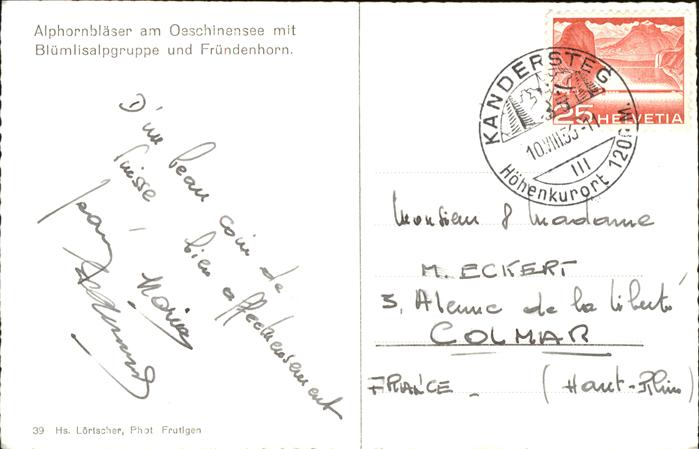 Alphornbläser am Oeschinensee mit
Blümlisalpgruppe und Fründenhorn.
D'un beau coin de
Suisse, bien affectueusement
39 Hs. Lörtscher, Phot Frutigen
KANDERSTEG
10.VIII.53-11
III
Höhenkurort 1200 M.
25 HELVETIA
Monsieur & Madame
M. ECKERT
3, Avenue de la Liberté
COLMAR
FRANCE. (Haut-Rhin)